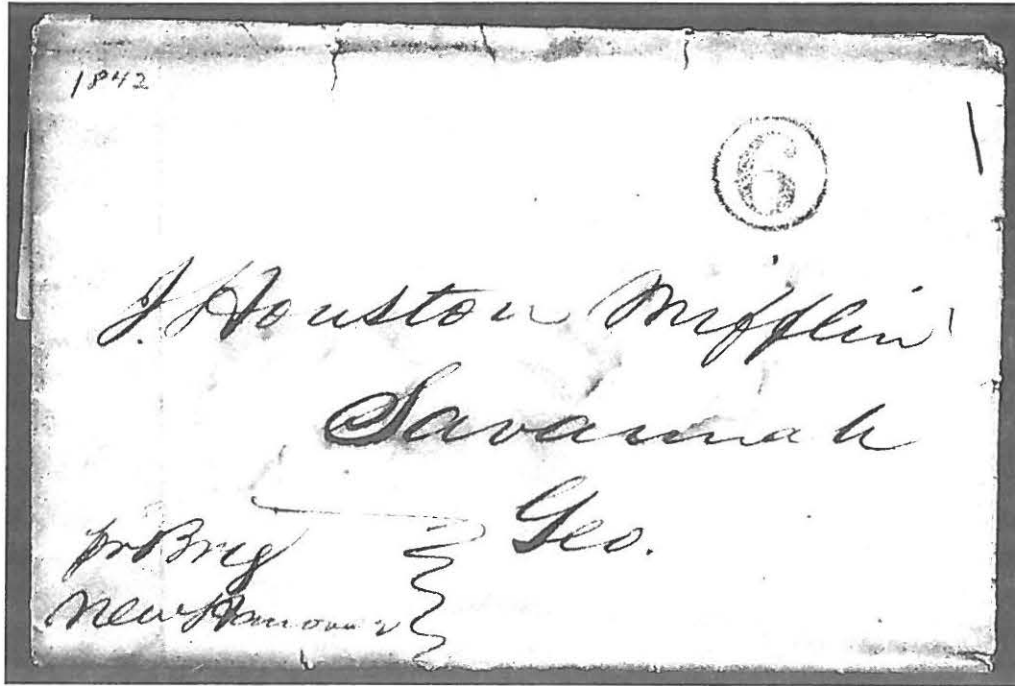 1842
6
J. Houston Mifflin
Savannah
Geo.
pr Brig
New Hanover